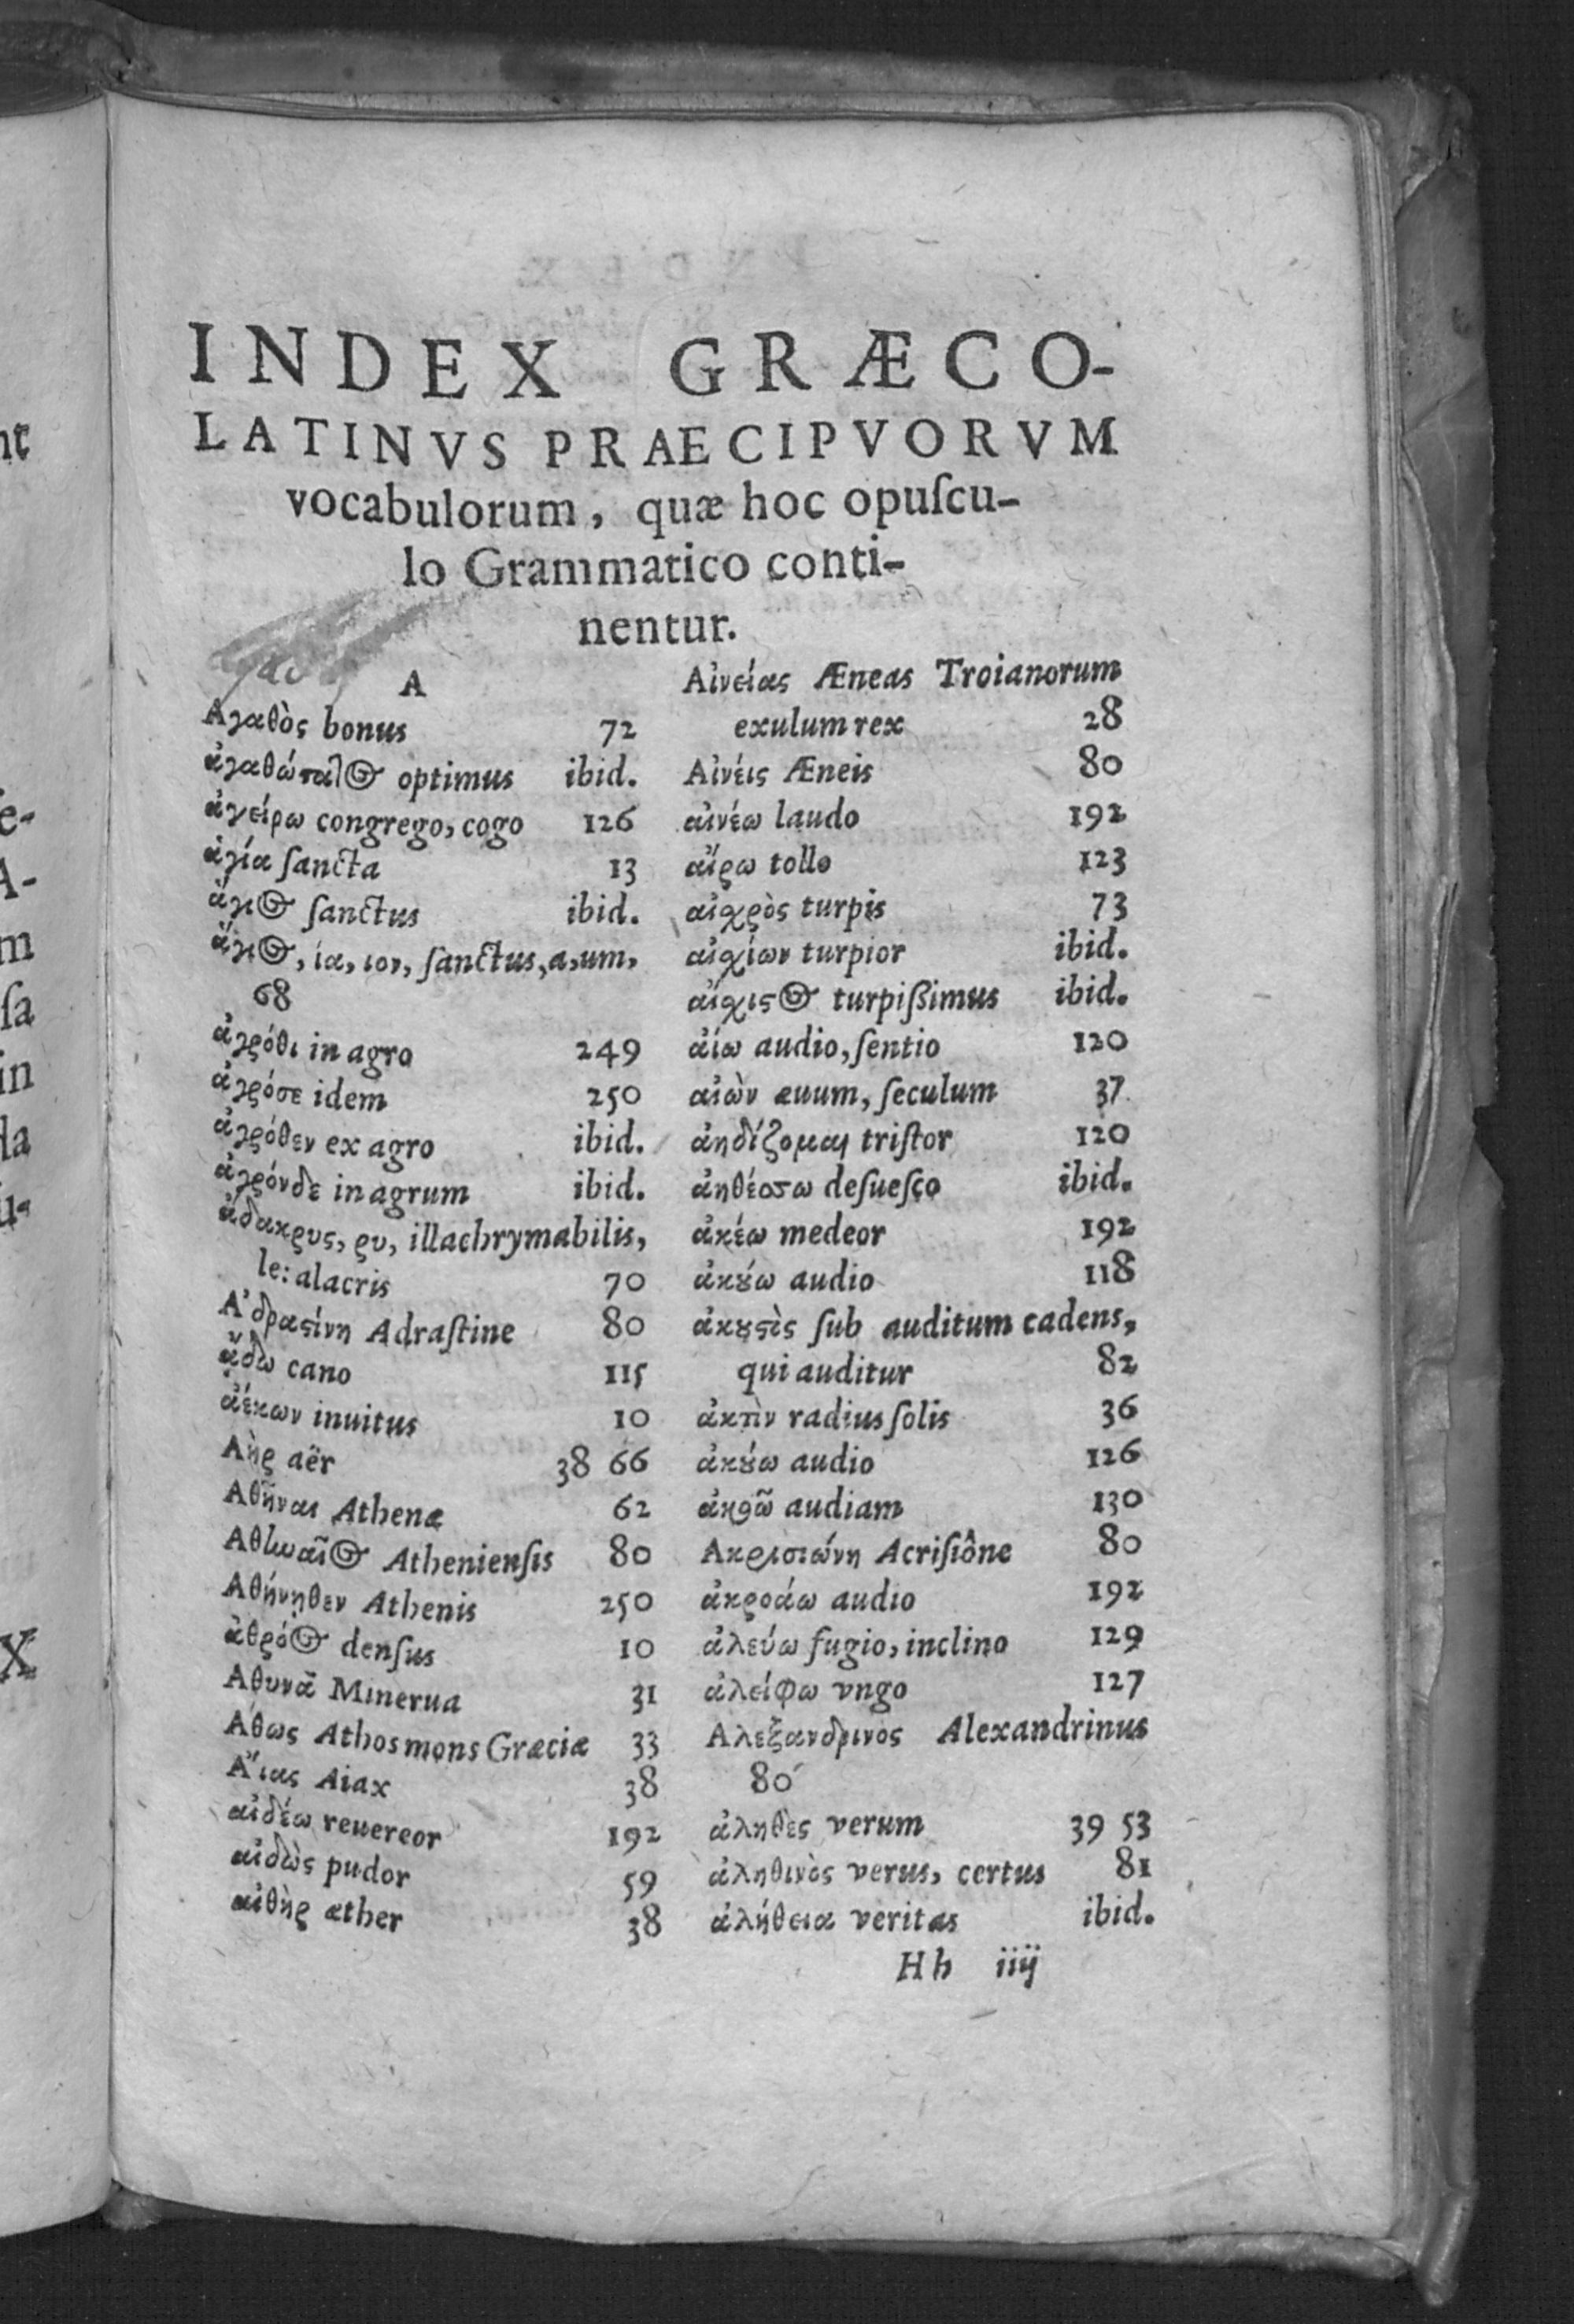 INDEX GRÆCO-
LATINVS PRAECIPVORVM
vocabulorum, quæ hoc opuſcu-
lo Grammatico conti-
nentur.
A
Αγαθὸς bonus 72
ἀγαθώτατος optimus ibid.
ἀγείρω congrego, cogo 126
ἁγία ſancta 13
ἅγιος ſanctus ibid.
ἅγιος, ία, ιον, ſanctus, a, um,
68
ἀγρόθι in agro 249
ἀγρόσε idem 250
ἀγρόθεν ex agro ibid.
ἀγρόνδε in agrum ibid.
ἄδακρυς, ρυ, illachrymabilis,
le: alacris 70
Α᾽δραστίνη Adraſtine 80
ᾄδω cano 115
ἀέκων inuitus 10
Αὴρ aër 38 66
Αθῆναι Athenæ 62
Αθηναῖος Athenienſis 80
Αθήνηθεν Athenis 250
ἀθρόος denſus 10
Αθυνᾶ Minerua 31
Αθως Athos mons Græciæ 33
Αἴας Aiax 38
αἰδέω reuereor 192
αἰδὼς pudor 59
αἰθὴρ æther 38
Αἰνείας Æneas Troianorum
exulum rex 28
Αἰνέις Æneis 80
αἰνέω laudo 192
αἴρω tollo 123
αἰχρὸς turpis 73
αἰχίων turpior ibid.
αἴχιστος turpißimus ibid.
ἀίω audio, ſentio 120
αἰὼν æuum, ſeculum 37
ἀηδίζομαι triſtor 120
ἀηθέσσω deſueſco ibid.
ἀκέω medeor 192
ἀκούω audio 118
ἀκουστὸς ſub auditum cadens,
qui auditur 82
ἀκτὶν radius ſolis 36
ἀκούω audio 126
ἀκοῶ audiam 130
Ακρισιώνη Acriſiône 80
ἀκροάω audio 192
ἀλεύω fugio, inclino 129
ἀλείφω vngo 127
Αλεξανδρινος Alexandrinus
80
ἀληθὲς verum 39 53
ἀληθινὸς verus, certus 81
ἀλήθεια veritas ibid.
Hh iiij